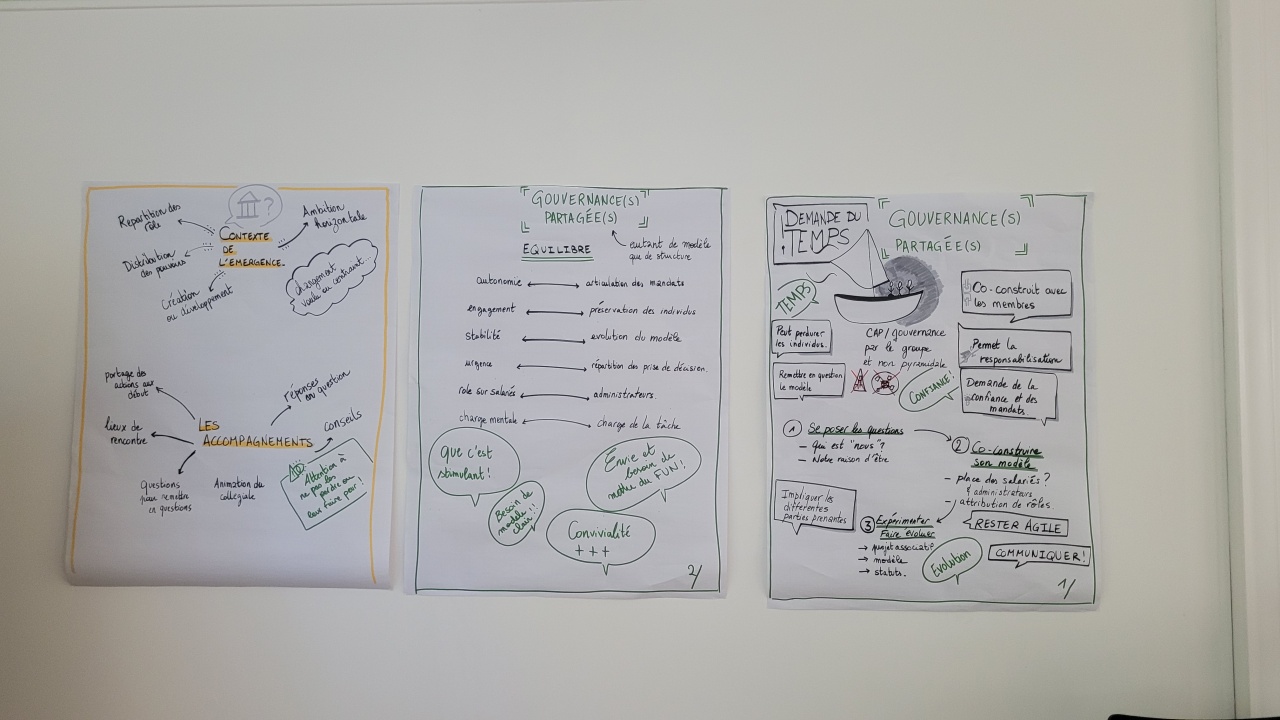 ?
CONTEXTE
DE
L'EMERGENCE.
Repartition des
rôle
Ambition
horizontale
Distribution
des pouvoirs
Création
ou développement
changement
voulu ou contraint...
partage des
actions au
début
réponses
en question
lieux de
rencontre
LES
ACCOMPAGNEMENTS
conseils
Questions
pour remettre
en questions
Animation du
collégiale
Attention à
ne pas les
perdre ou
leur faire peur !
GOUVERNANCE(S)
PARTAGÉE(S)
EQUILIBRE
autant de modèle
que de structure
autonomie articulation des mandats
engagement préservation des individus
stabilité evolution du modèle
urgence répartition des prise de décision.
role sur salariés administrateurs.
charge mentale charge de la tâche
Que c'est
stimulant !
Envie et
besoin de
mettre du FUN !
Besoin de
modèle
clair !!
Convivialité
+++
2/
DEMANDE DU
TEMPS
GOUVERNANCE(S)
PARTAGÉE(S)
TEMPS
Co-construit avec
les membres
Peut perdurer
les individus.
CAP/gouvernance
par le groupe
et non pyramidale
Permet la
responsabilisation
Remettre en question
le modèle
CONFIANCE !
Demande de la
confiance et des
mandats.
1 Se poser les questions
- Qui est "nous" ?
- Notre raison d'être
2 Co-construire
son modèle
- place des salariés ?
& administrateurs
- attribution de rôles.
Impliquer les
différentes
parties prenantes
3 Expérimenter
Faire évoluer
→ projet associatif
→ modèle
→ statuts.
RESTER AGILE
Evolution
COMMUNIQUER !
1/